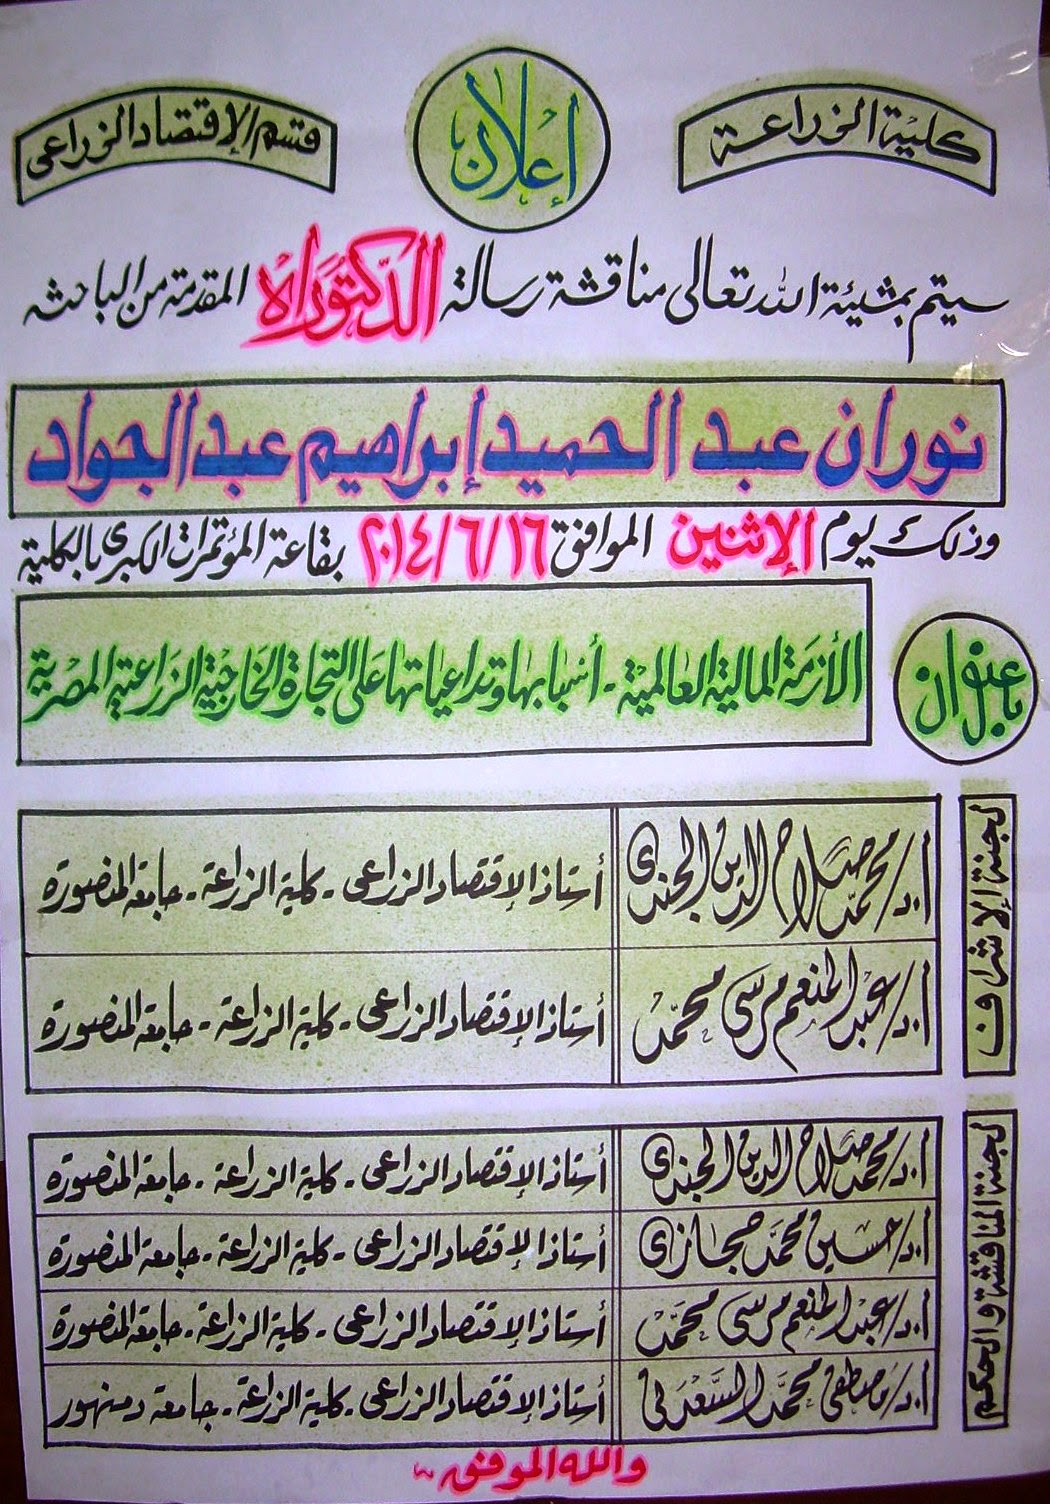 كلية الزراعة
إعلان
قسم الإقتصاد الزراعى
سيتم بمشيئة الله تعالى مناقشة رسالة الدكتوراه المقدمة من الباحثه
نوران عبد الحميد إبراهيم عبد الجواد
وذلك يوم الإثنين الموافق ٢٠١٤/٦/١٦ بقاعة المؤتمرات الكبرى بالكلية
بعنوان
الأزمة المالية العالمية - أسبابها وتداعياتها على التجارة الخارجية الزراعية المصرية
لجنة الإشراف
أ.د/ محمد صلاح الدين الجندى أستاذ الإقتصاد الزراعى - كلية الزراعة - جامعة المنصورة
أ.د/ عبد المنعم مرسى محمد أستاذ الإقتصاد الزراعى - كلية الزراعة - جامعة المنصورة
لجنة المناقشة والحكم
أ.د/ محمد صلاح الدين الجندى أستاذ الإقتصاد الزراعى - كلية الزراعة - جامعة المنصورة
أ.د/ حسين محمد حجازى أستاذ الإقتصاد الزراعى - كلية الزراعة - جامعة المنصورة
أ.د/ عبد المنعم مرسى محمد أستاذ الإقتصاد الزراعى - كلية الزراعة - جامعة المنصورة
أ.د/ مصطفى محمد السعدنى أستاذ الإقتصاد الزراعى - كلية الزراعة - جامعة دمنهور
والله الموفق